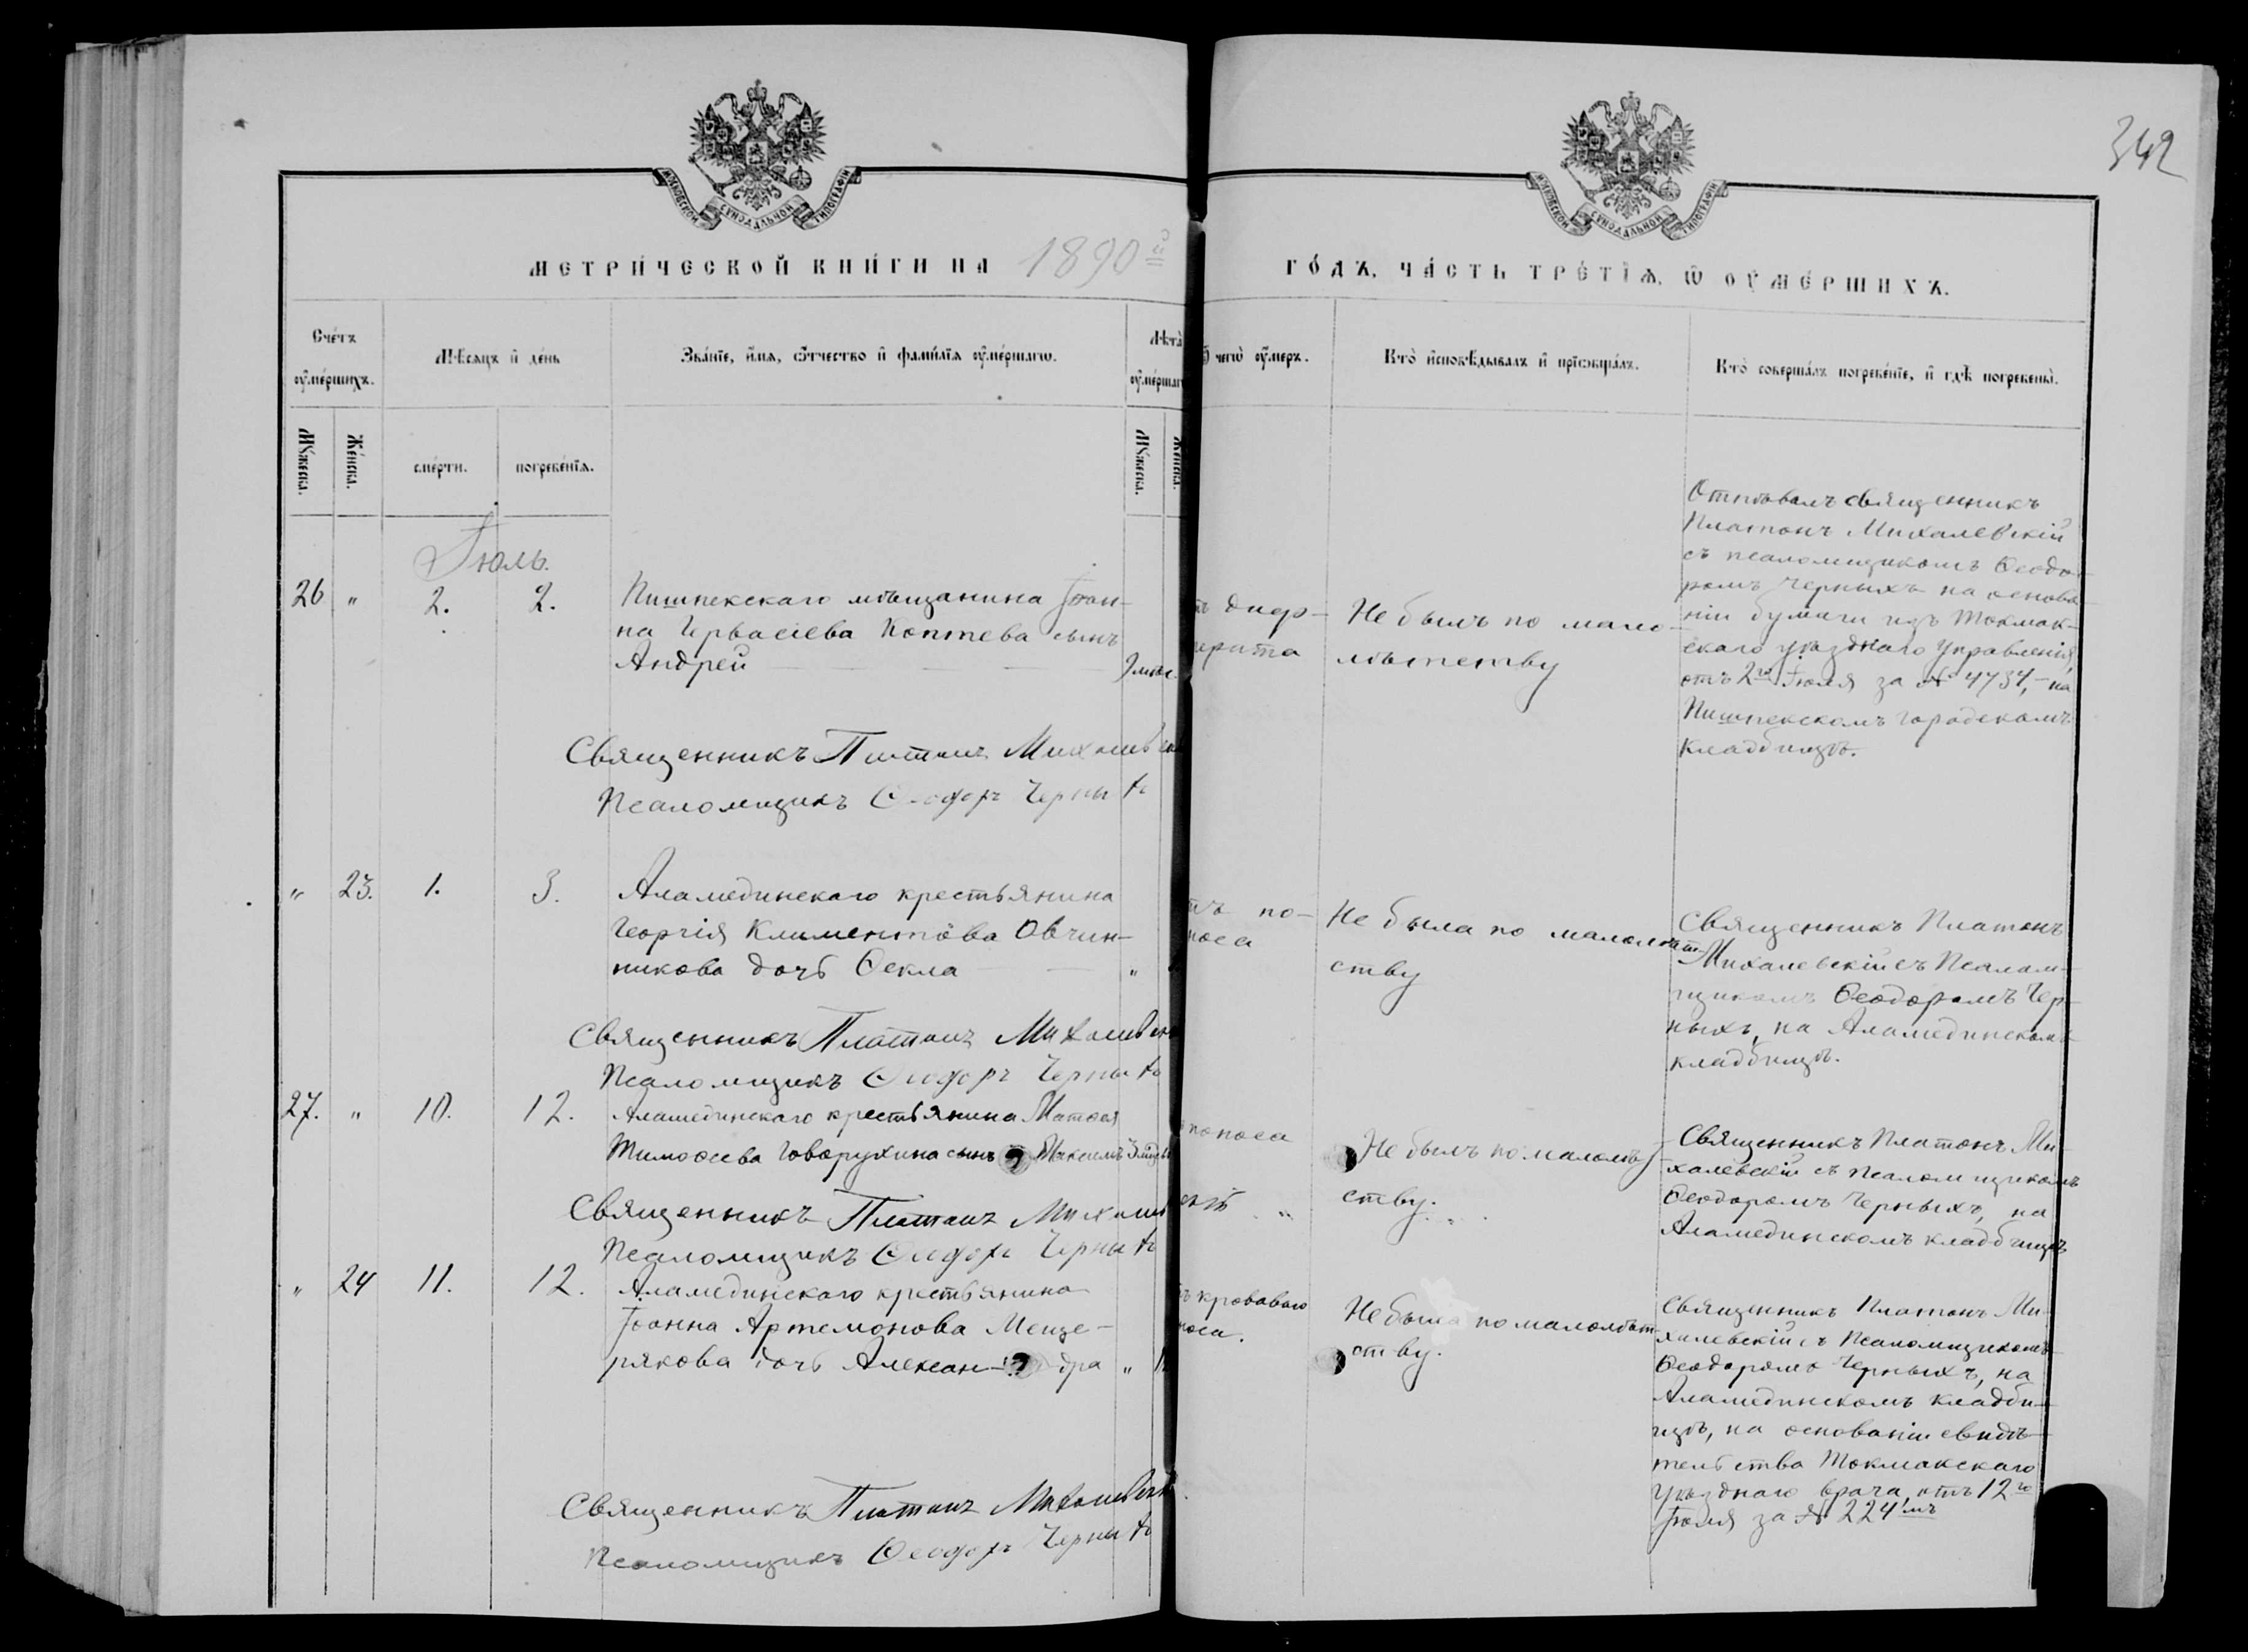 342
МОСКОВСКОЙ СѴНОДАЛЬНОЙ ТИПОГРАФІИ
МОСКОВСКОЙ СѴНОДАЛЬНОЙ ТИПОГРАФІИ
МЕТРИ́ЧЕСКОЙ КНИ́ГИ НА 1890й
ГО́ДЪ, ЧА́СТЬ ТРЕ́ТІѦ, Ѿ ОУМЕ́РШИХЪ.
Сче́тъ оумершихъ.
Мѣсяцъ и де́нь
Зва́нїе, и́мя, ѻтчество и фами́лїя оуме́ршагѡ.
Лѣта̀
оуме́ршаг
чегѡ̀ оумеръ.
Кто̀ исповѣдывалъ и прїобща́лъ.
Кто̀ соверша́лъ погребе́нїе, и гдѣ погребены̀.
Мꙋжеска.
Же́нска.
сме́рти.
погребе́нїя.
Мꙋжеска.
Же́нска.
Іюль.
26 " 2. 2.
Пишпекскаго мѣщанина Іоан-
на Гервасіева Коптева сынъ
Андрей
диф-
ерита
Не былъ по мало-
лѣтству
Отпѣвалъ священникъ
Платонъ Михалевскій
съ псаломщикомъ Ѳеодо-
ромъ Черныхъ на основа-
ніи бумаги изъ Токмак-
скаго уѣзднаго Управленія,
отъ 2го Іюля за № 4734, - на
Пишпекскомъ городскомъ
кладбищѣ.
Священникъ Платонъ Михалевск
Псаломщикъ Ѳеодоръ Черныхъ
" 23. 1. 3.
Аламединскаго крестьянина
Георгія Климентова Овчин-
никова дочь Ѳекла "
тъ по-
носа
Не была по малолѣт-
ству
Священникъ Платонъ
Михалевскій съ Псалом-
щикомъ Ѳеодоромъ Чер-
ныхъ, на Аламединском
кладбищѣ.
Священникъ Платонъ Михалевск
Псаломщикъ Ѳеодоръ Черныхъ
27. " 10. 12.
Аламединскаго крестьянина Матѳея
Тимоѳеева Говорухина сынъ Максимъ
поноса
Не былъ по малолѣт-
ству.
Священникъ Платонъ Ми-
халевскій съ псаломщикомъ
Ѳеодоромъ Черныхъ, на
Аламединскомъ кладбищѣ
Священникъ Платонъ Михалев
Псаломщикъ Ѳеодоръ Черныхъ
" 24 11. 12.
Аламединскаго крестьянина
Іоанна Артемонова Меще-
рякова дочь Алексан- дра "
ъ кроваваго
носа.
Не была по малолѣт-
ству.
Священникъ Платонъ Ми-
халевскій съ Псаломщикомъ
Ѳеодоромъ Черныхъ, на
Аламединскомъ кладби-
щѣ, на основаніи свидѣ-
тельства Токмакскаго
Уѣзднаго врача, отъ 12го
Іюля за № 224мъ
Священникъ Платонъ Михалевск
Псаломщикъ Ѳеодоръ Черныхъ